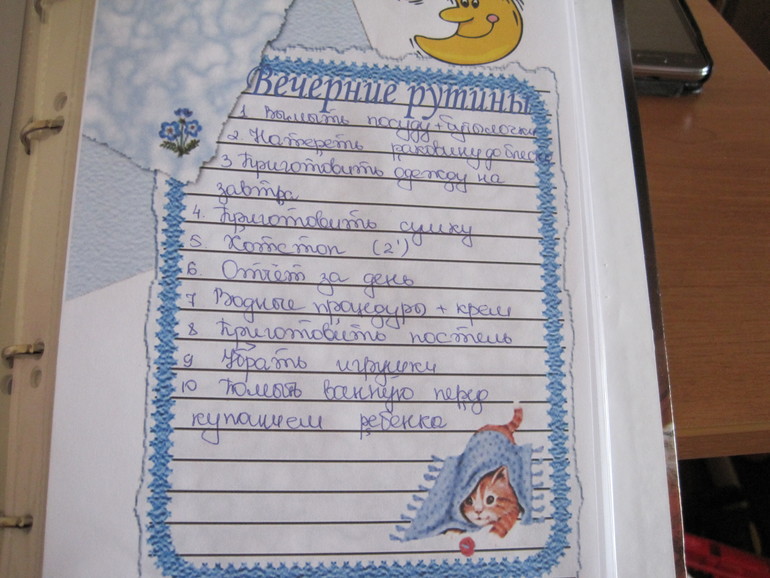 Вечерние рутины
1 Вымыть посуду + бутылочки
2. Натереть раковину до блеска
3 Приготовить одежду на
завтра
4. Приготовить сумку
5. Хотстоп (2')
6. Отчёт за день
7 Водные процедуры + крем
8 Приготовить постель
9 Убрать игрушки
10 Помыть ванную перед
купанием ребенка